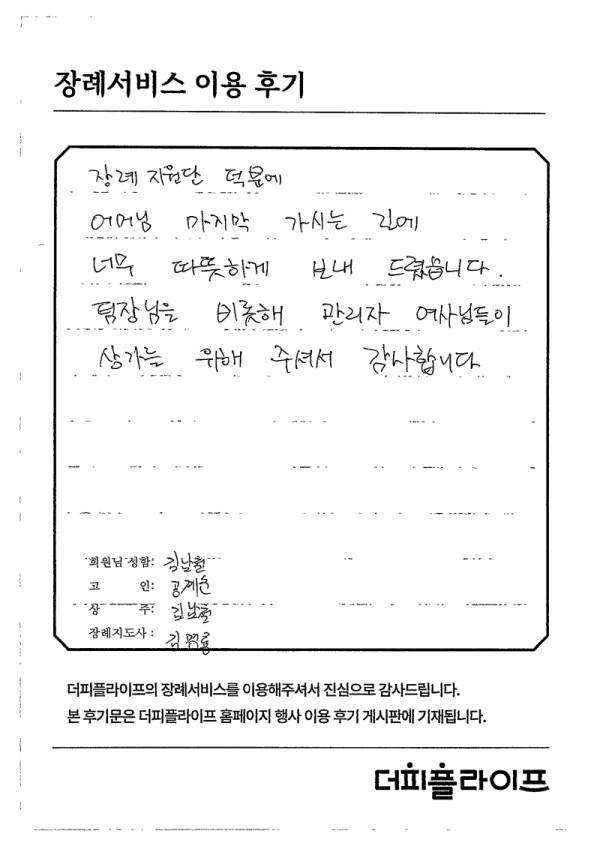 장례서비스 이용 후기
장례 지원단 덕분에
어머님 마지막 가시는 길에
너무 따뜻하게 보내 드렸습니다.
팀장님을 비롯해 관리자 여사님들이
상가를 위해 주셔서 감사합니다
회원님 성함: 김남철
고 인: 공계순
상 주: 김남철
장례지도사:
더피플라이프의 장례서비스를 이용해주셔서 진심으로 감사드립니다.
본 후기문은 더피플라이프 홈페이지 행사 이용 후기 게시판에 기재됩니다.
더피플라이프